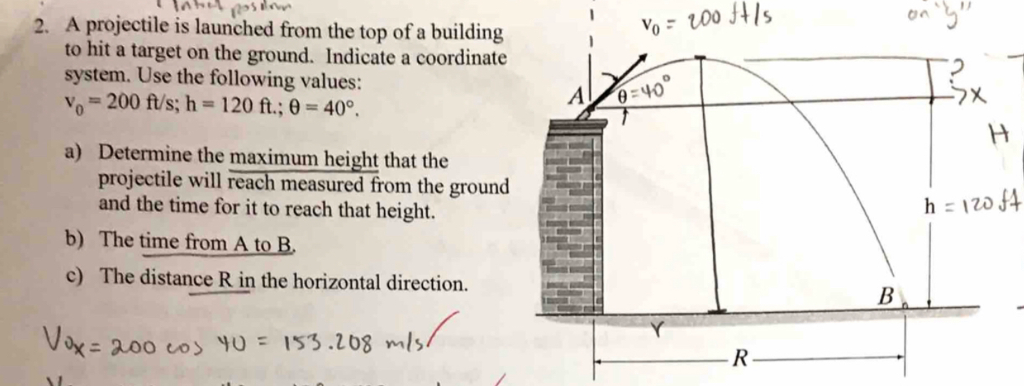 2. A projectile is launched from the top of a building
to hit a target on the ground. Indicate a coordinate
system. Use the following values:
v₀ = 200 ft/s; h = 120 ft.; θ = 40°.
a) Determine the maximum height that the
projectile will reach measured from the ground
and the time for it to reach that height.
b) The time from A to B.
c) The distance R in the horizontal direction.
V₀ₓ = 200 cos 40 = 153.208 m/s
v₀ = 200 ft/s
on "y"
A
θ = 40°
?
x
H
h = 120 ft
B
r
R